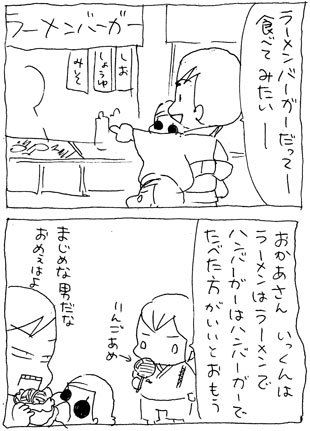 ラーメンバーガー
しお
しょうゆ
みそ
ラーメンバーガーだってー
食べてみたいー
おかあさん いっくんは
ラーメンはラーメンで
ハンバーガーはハンバーガーで
たべた方がいいとおもう
りんごあめ
まじめな男だな
おめぇはよ